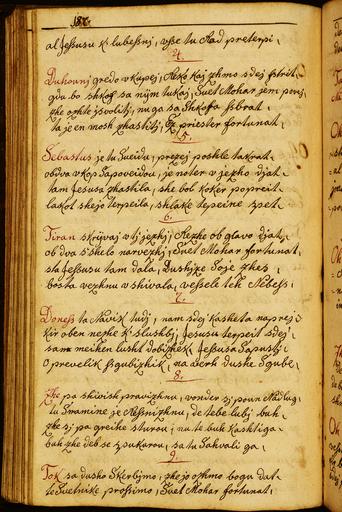 187.
al Jessusu k' lubesnj, vse tu Rad preterpi,
4.
Duhounj gredo vkupej, Reko kaj zhmo sdej
gdu bo shkof sa nym tukaj, Svet Mohar jem
zhe ozhte isvolitj, nu ga sa Shkofa
ta je en mosh zhastitj, priester fortunat,
5.
Sebastus je tu Sueidu, prezej poshle takrat
obdva vkop Sapoveidou, je noter v jezho djat
tam Jesusa zhastila, she bol koker popreit
lakot shejo terpeila, shlake tepeine spet
6.
Tiran skrivaj vtj jezhj, Rezhe ob glavo djat,
ob dva s'shelo narvezhj, Svet Mohar fortunat
sta Jessusu tam dala, Dushize soje zhes
bosta vezhnu vshivala, vessele tek Nebess,
7.
Doness ta Navik tudj, nam sdej kasheta naprej
kir oben nezhe k' slushbj, Jesusu terpeit sdej
sam meihen lusht dobizhek, Jessusa Sapustj
O prevelik sgubizhik, na zerk dushe Sgube,
8.
Zhe pa shivish pravizhnu, vonder sj poun Nadlug
tu Svamine je Ressnizhnu, de tebe lubj buh
zhe sj pa greihe sturou, nu te buh kashtiga
buh zhe deb se spukorou, sa tu Sahvali ga,
9.
Tok sa dusho Skerbimo, zhe jo ozhmo bogu dat
te Svetnike prossimo, Svet Mohar fortunat,